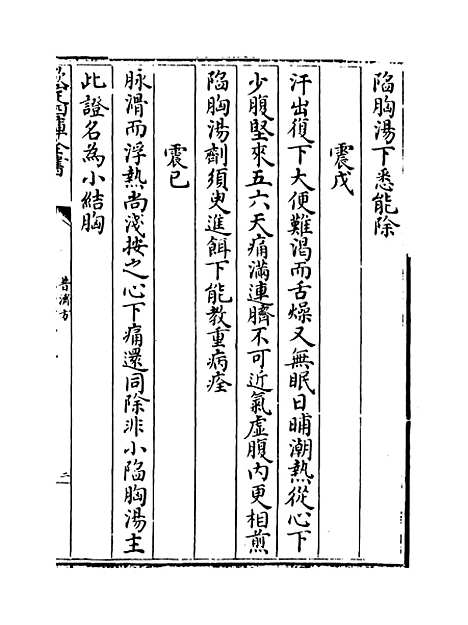 陷胸湯下悉能除
震戌
汗出復下大便難渴而舌燥又無眠日晡潮熱從心下
少腹堅來五六天痛滿連臍不可近氣虛腹內更相煎
陷胸湯劑須臾進餌下能教重病痊
震已
脉滑而浮熱尚淺按之心下痛還同除非小陷胸湯主
此證名為小結胸
欽定四庫全書
普濟方
二